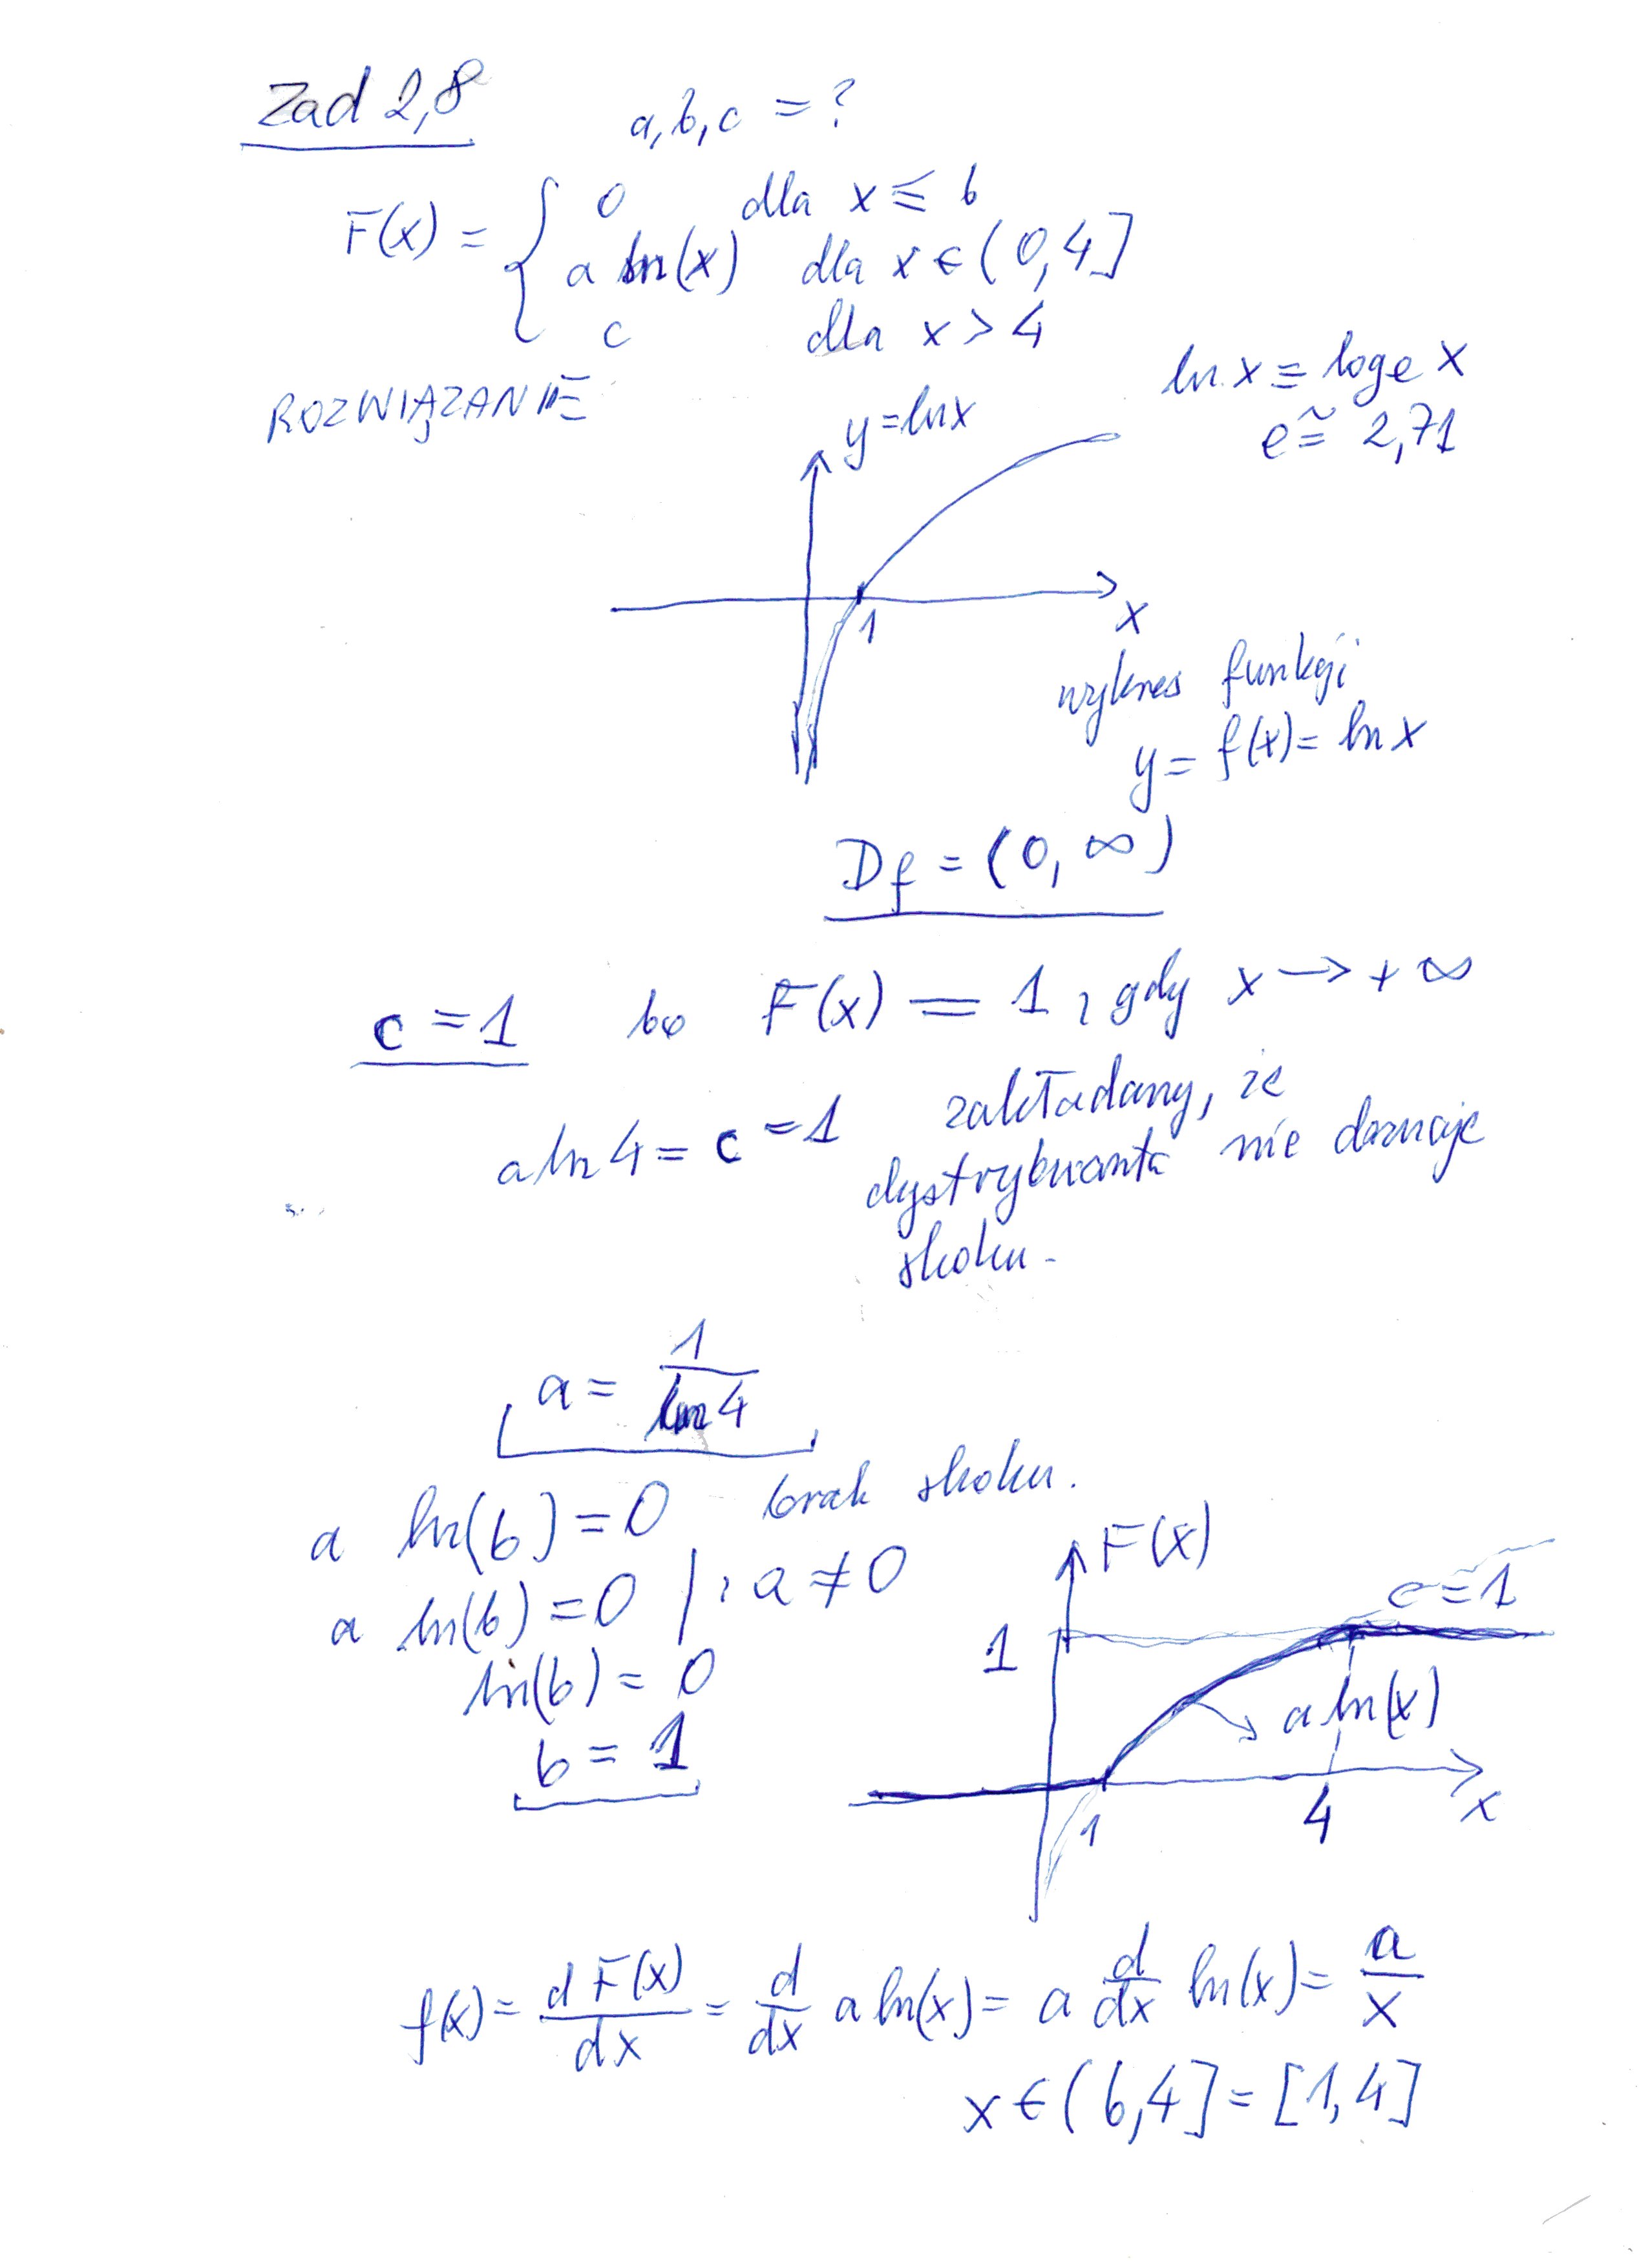 Zad 2,8
a, b, c = ?
F(x) = { 0 dla x ≤ b
a ln(x) dla x ∈ (0,4]
c dla x > 4
ROZWIĄZANIE
ln x ≡ loge x
e ≅ 2,71
y = lnx
1
x
wykres funkcji
y = f(x) = ln x
Df = (0, ∞)
c = 1 bo F(x) = 1, gdy x → + ∞
a ln 4 = c = 1 zakładamy, że
dystrybuanta nie doznaje
skoku.
a = 1/ln 4
a ln(b) = 0 brak skoku.
a ln(b) = 0 | : a ≠ 0
ln(b) = 0
b = 1
F(x)
c = 1
1
a ln(x)
1
4
x
f(x) = dF(x)/dx = d/dx a ln(x) = a d/dx ln(x) = a/x
x ∈ (b,4] = [1,4]